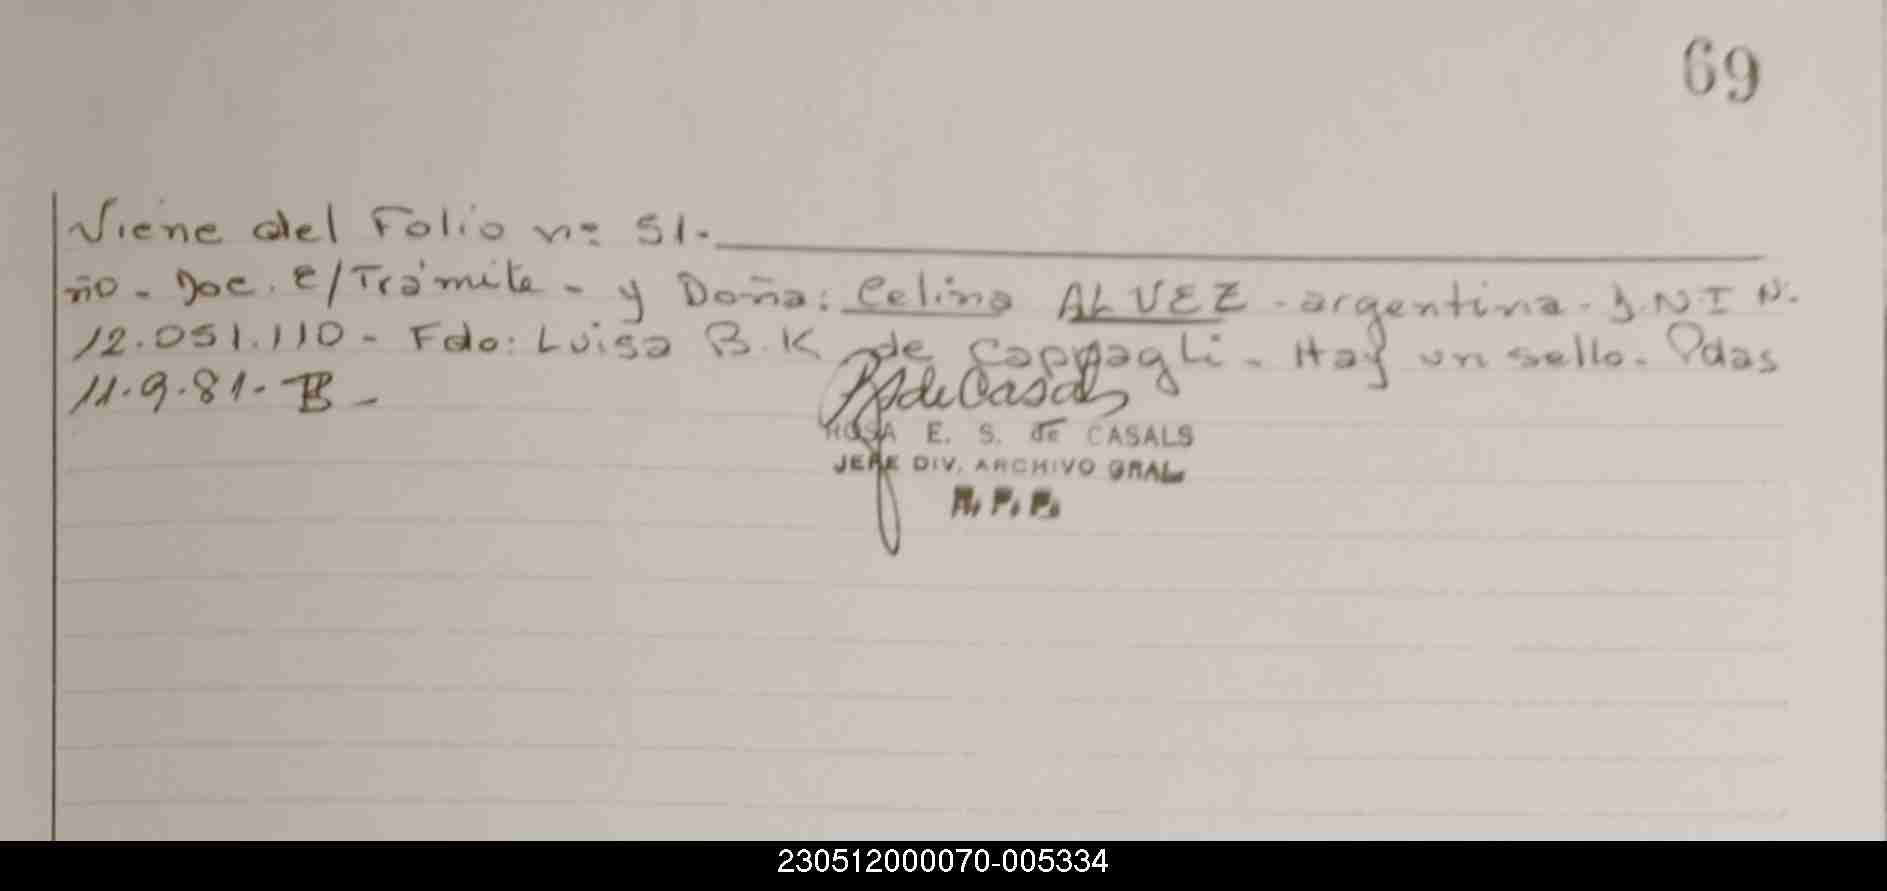 69
Viene del Folio nº 51.
ño - Doc. e/Trámite - y Doña: Celina ALVEZ - argentina - D.N.I Nº
12.051.110 - Fdo: Luisa B. K de Cappagli - Hay un sello. Pdas
11.9.81 -
ROSA E. S. de CASALS
JEFE DIV. ARCHIVO GRAL
R. P. P.
230512000070-005334